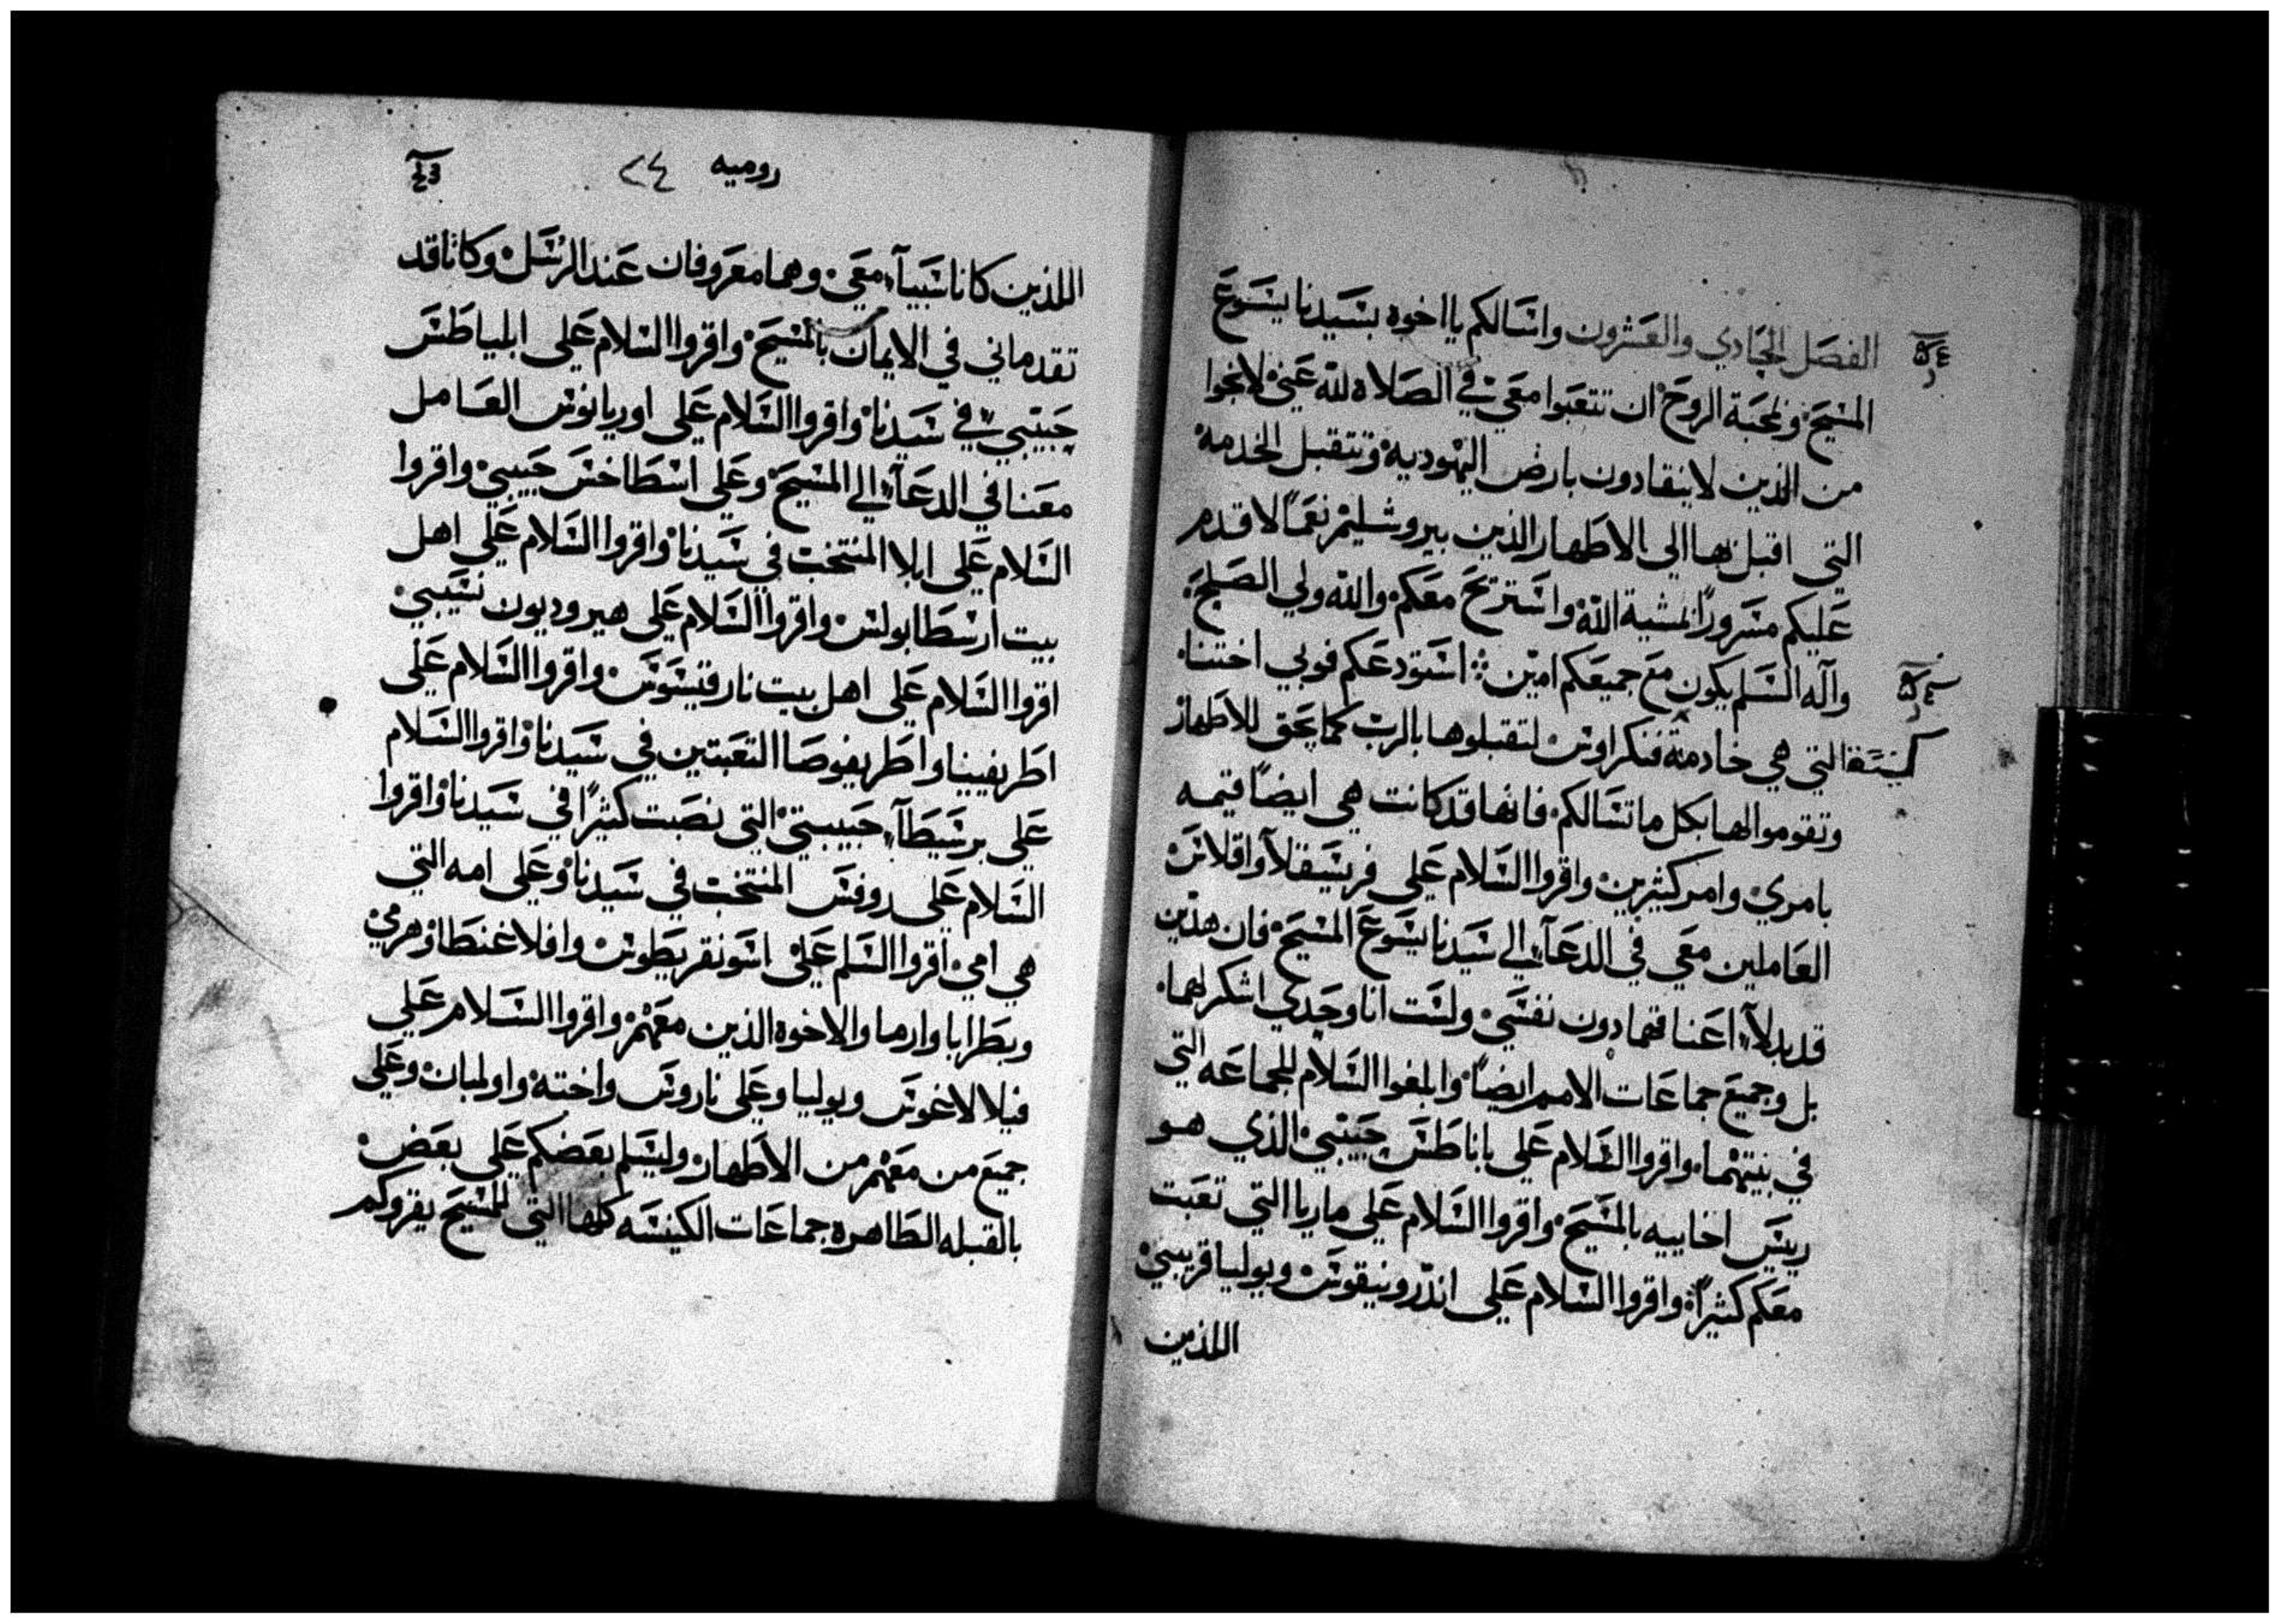 الفصل الحادي والعشرون واسالكم يا اخوه بسيدنا يسوع
المسيح ولمحبة الروح ان تتعبوا معي في الصلاه لله عني لانجوا
من الذين لا ينقادون بارض اليهوديه وتتقبل الخدمه
التي اقبل بها الى الاطهار الذين بيروشليم نعمًا لاقدم
عليكم مسرورًا بمشية الله واستريح معكم والله ولي الصلح
واله السلم يكون مع جميعكم امين استودعكم فوبي اختنا
التي هي خادمة كنيسة قنكراوس لتقبلوها بالرب كما يحق للاطهار
وتقوموا لها بكل ما تسالكم فانها قد كانت هي ايضًا قيمه
بامري وامر كثيرين واقروا السلام على فرسيقلا واقلاس
العاملين معي في الدعآ الي سيدنا يسوع المسيح فان هذين
قد بدلآ اعناقهما دون نفسي ولست انا وحدي اشكرلهما
بل وجميع جماعات الامم ايضًا وابلغوا السلام للجماعه التي
في بيتهما واقروا السلام على باناطس حبيبي الذي هو
رييس اخاييه بالمسيح واقروا السلام علي ماريا التي تعبت
معكم كثيرًا واقروا السلام علي اندرونيقوس ويوليا قريبي
اللذين
روميه ٢٤
اللذين كانا سبيآ معي وهما معروفان عند الرسل وكانا قد
تقدماني في الايمان بالمسيح واقروا السلام على ابلياطس
حبيبي في سيدنا واقروا السلام علي اوريانوس العامل
معنا في الدعآ الي المسيح وعلي اسطاخس حبيبي واقروا
السلام علي ابلا المنتخب في سيدنا واقروا السلام علي اهل
بيت ارسطابولس واقروا السلام علي هيروديون نسيبي
اقروا السلام علي اهل بيت نارقيسوس واقروا السلام علي
اطريفينيا واطريفوصا التعبتين في سيدنا واقروا السلام
علي برسيطآ حبيبتي التي نصبت كثيرًا في سيدنا واقروا
السلام علي روفس المنتخب في سيدنا وعلي امه التي
هي امي اقروا السلم علي اسونقريطوس وافلاغنطا وهرمي
وبطرابا وارما والاخوه الذين معهم واقروا السلام علي
فيلالاغوس ويوليا وعلي ناروس واخته واولمبان وعلي
جميع من معهم من الاطهار وليسلم بعضكم علي بعض
بالقبله الطاهره جماعات الكنيسه كلها التي للمسيح يقروكم